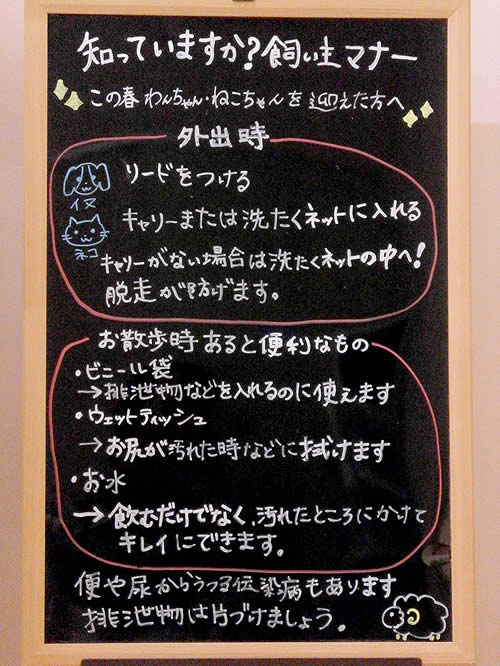 知っていますか?飼い主マナー
この春 わんちゃん・ねこちゃんを迎えた方へ
外出時
イヌ
リードをつける
ネコ
キャリーまたは洗たくネットに入れる
キャリーがない場合は洗たくネットの中へ!
脱走が防げます。
お散歩時あると便利なもの
・ビニール袋
→排泄物などを入れるのに使えます
・ウェットティッシュ
→お尻が汚れた時などに拭けます
・お水
→飲むだけでなく、汚れたところにかけて
キレイにできます。
便や尿からうつる伝染病もあります
排泄物は片づけましょう。